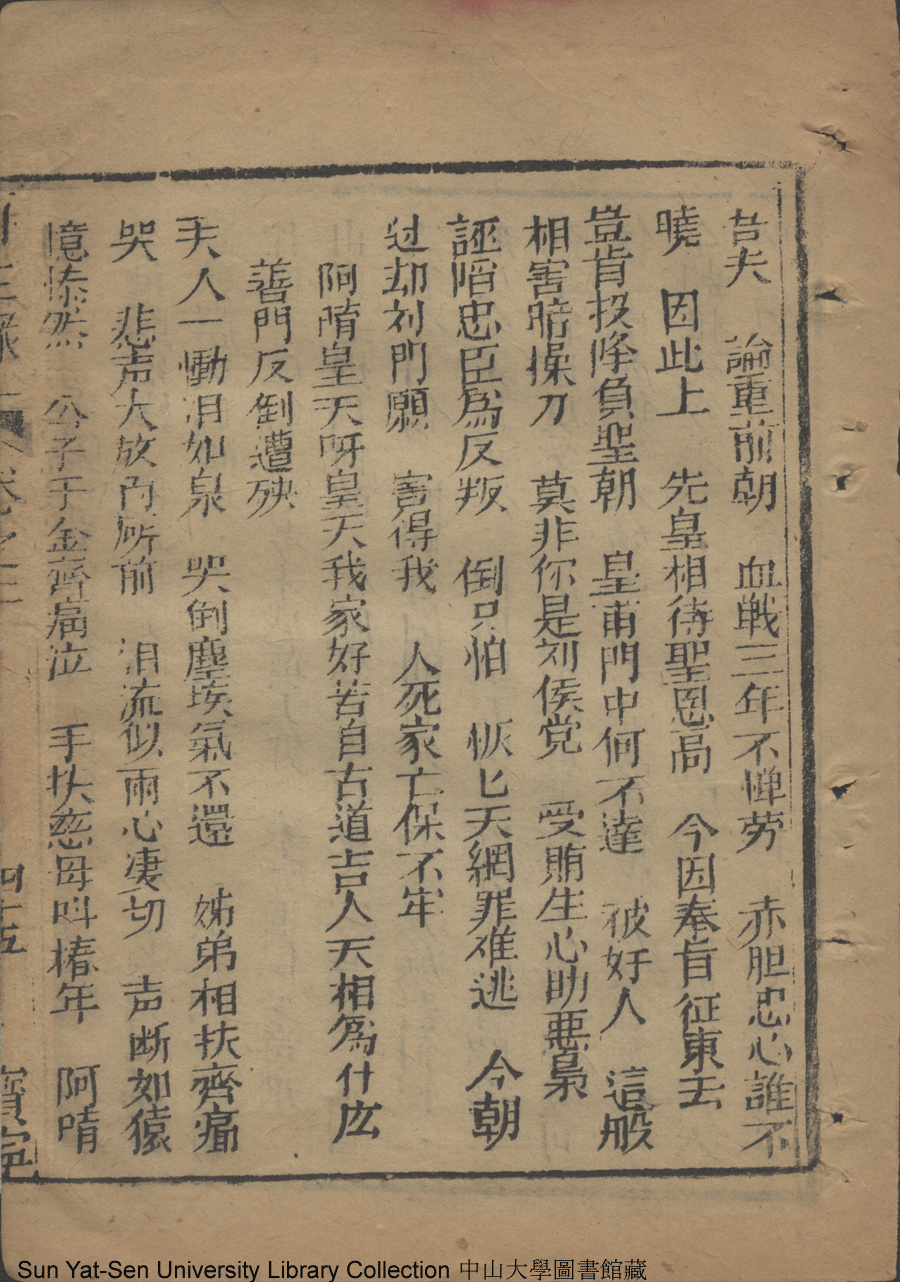 昔夫 論重前朝 血戰三年不憚劳 赤胆忠心誰不
曉 因此上 先皇相待聖恩高 今因奉旨征東去
豈肯投降負聖朝 皇甫門中何不達 被奸人 這般
相害暗操刀 莫非你是刘侯党 受賄生心助惡梟
誣陷忠臣為反叛 倒只怕 恢匕天網罪难逃 今朝
过却刘門願 害得我 人死家亡保不牢
阿隋皇天呀皇天我家好苦自古道吉人天相為什庅
善門反倒遭殃
夫人一慟泪如泉 哭倒塵埃氣不還 姊弟相扶齊痛
哭 悲声大放内所前 泪流似雨心凄切 声断如猿
憶惨然 公子千金齊痛泣 手扶慈母呌椿年 阿唷
卷之三
四十五
寳寧
Sun Yat-Sen University Library Collection 中山大學圖書館藏